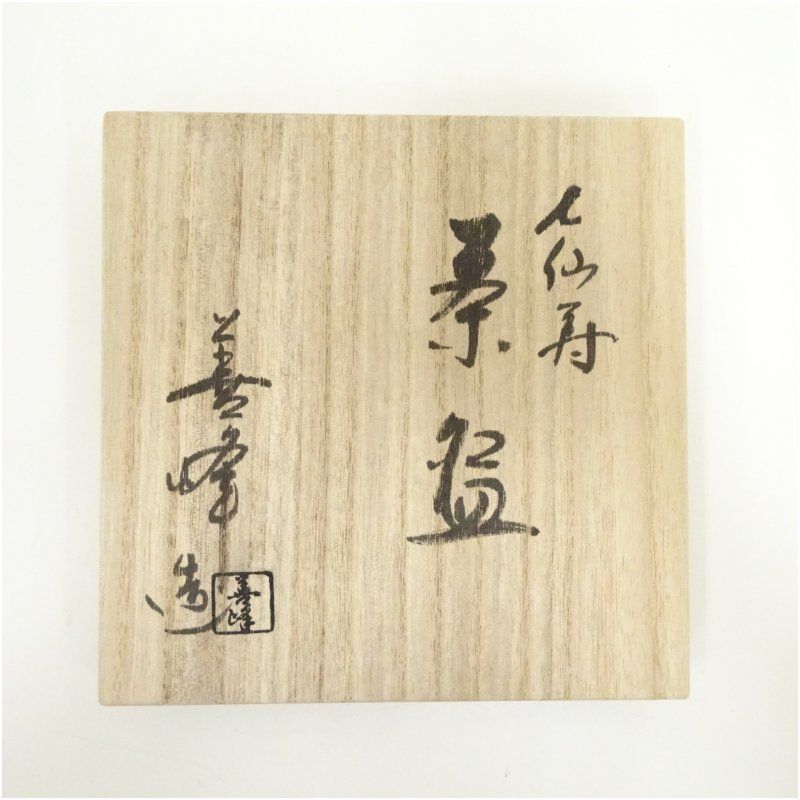 七仙寿
茶盌
善峰
造
善峰